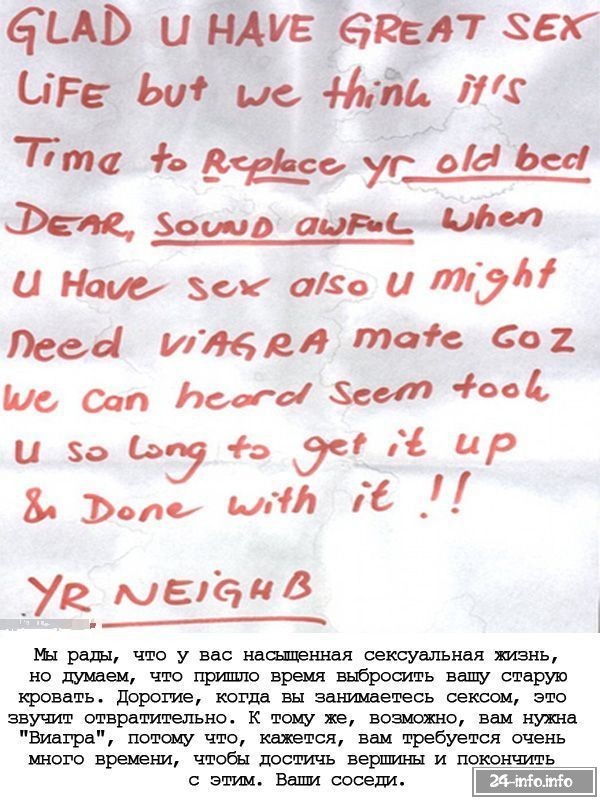 GLAD U HAVE GREAT SEX
LiFE but we think it's
Time to Replace yr old bed
DEAR, SOUND AWFUL when
U Have sex also u might
need ViAGRA mate COZ
We can heard seem took
u so long to get it up
& Done with it !!
YR NEIGHB
Мы рады, что у вас насыщенная сексуальная жизнь,
но думаем, что пришло время выбросить вашу старую
кровать. Дорогие, когда вы занимаетесь сексом, это
звучит отвратительно. К тому же, возможно, вам нужна
"Виагра", потому что, кажется, вам требуется очень
много времени, чтобы достичь вершины и покончить
с этим. Ваши соседи.
24-info.info